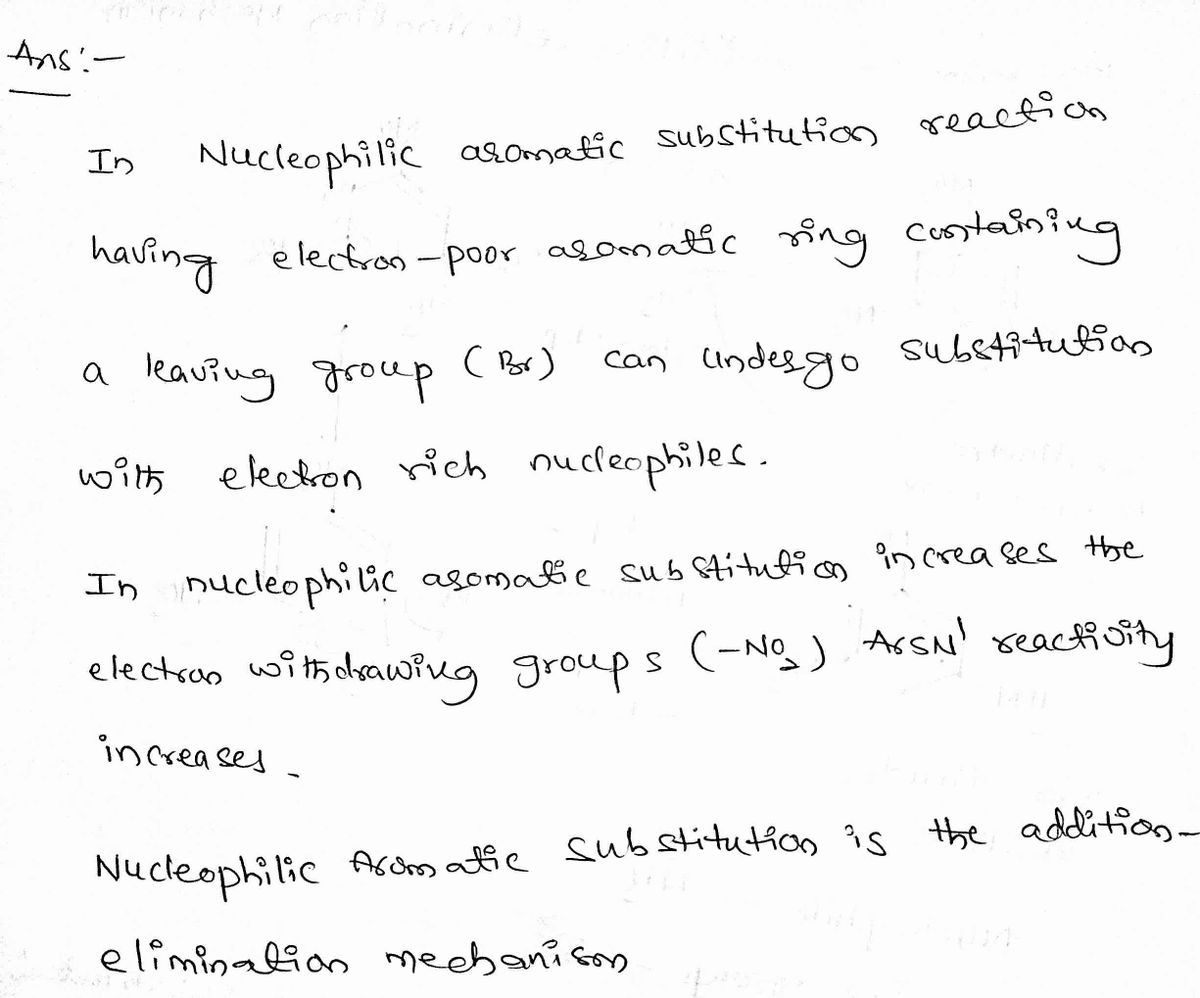 Ans:-
In Nucleophilic aromatic substitution reaction
having electron-poor aromatic ring containing
a leaving group (Br) can undergo substitution
with electron rich nucleophiles.
In nucleophilic aromatic substitution increases the
electron withdrawing groups (-NO₂) ArSN' reactivity
increases.
Nucleophilic Aromatic substitution is the addition-
elimination mechanism